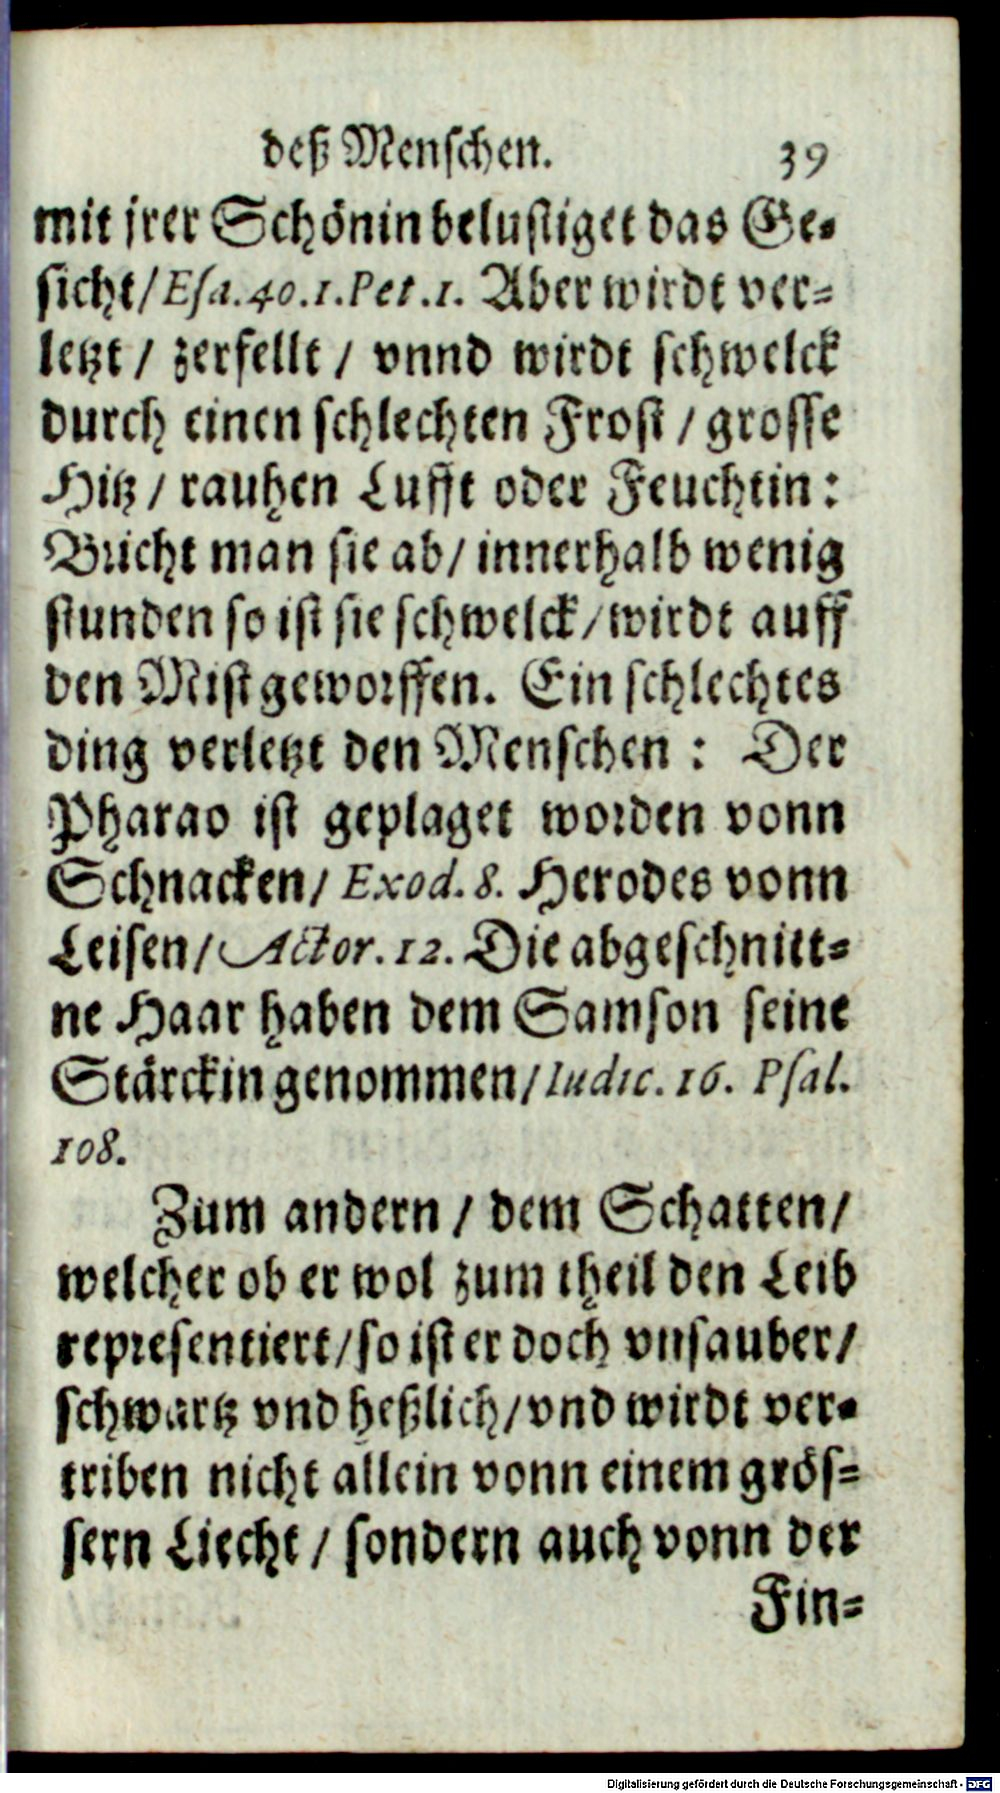 deß Menschen. 39
mit jrer Schönin belustiget das Ge-
sicht/ Esa. 40. 1. Pet. 1. Aber wirdt ver-
letzt / zerfellt / vnnd wirdt schwelck
durch einen schlechten Frost / grosse
Hitz / rauhen Lufft oder Feuchtin:
Bricht man sie ab/ innerhalb wenig
stunden so ist sie schwelck/ wirdt auff
den Mist geworffen. Ein schlechtes
ding verletzt den Menschen : Der
Pharao ist geplaget worden vonn
Schnacken/ Exod. 8. Herodes vonn
Leisen/ Actor. 12. Die abgeschnitt-
ne Haar haben dem Samson seine
Stärckin genommen/ Iudic. 16. Psal.
108.
Zum andern / dem Schatten/
welcher ob er wol zum theil den Leib
representiert/ so ist er doch vnsauber/
schwartz vnd heßlich/ vnd wirdt ver-
triben nicht allein vonn einem grös-
sern Liecht / sondern auch vonn der
Fin-
Digitalisierung gefördert durch die Deutsche Forschungsgemeinschaft - DFG